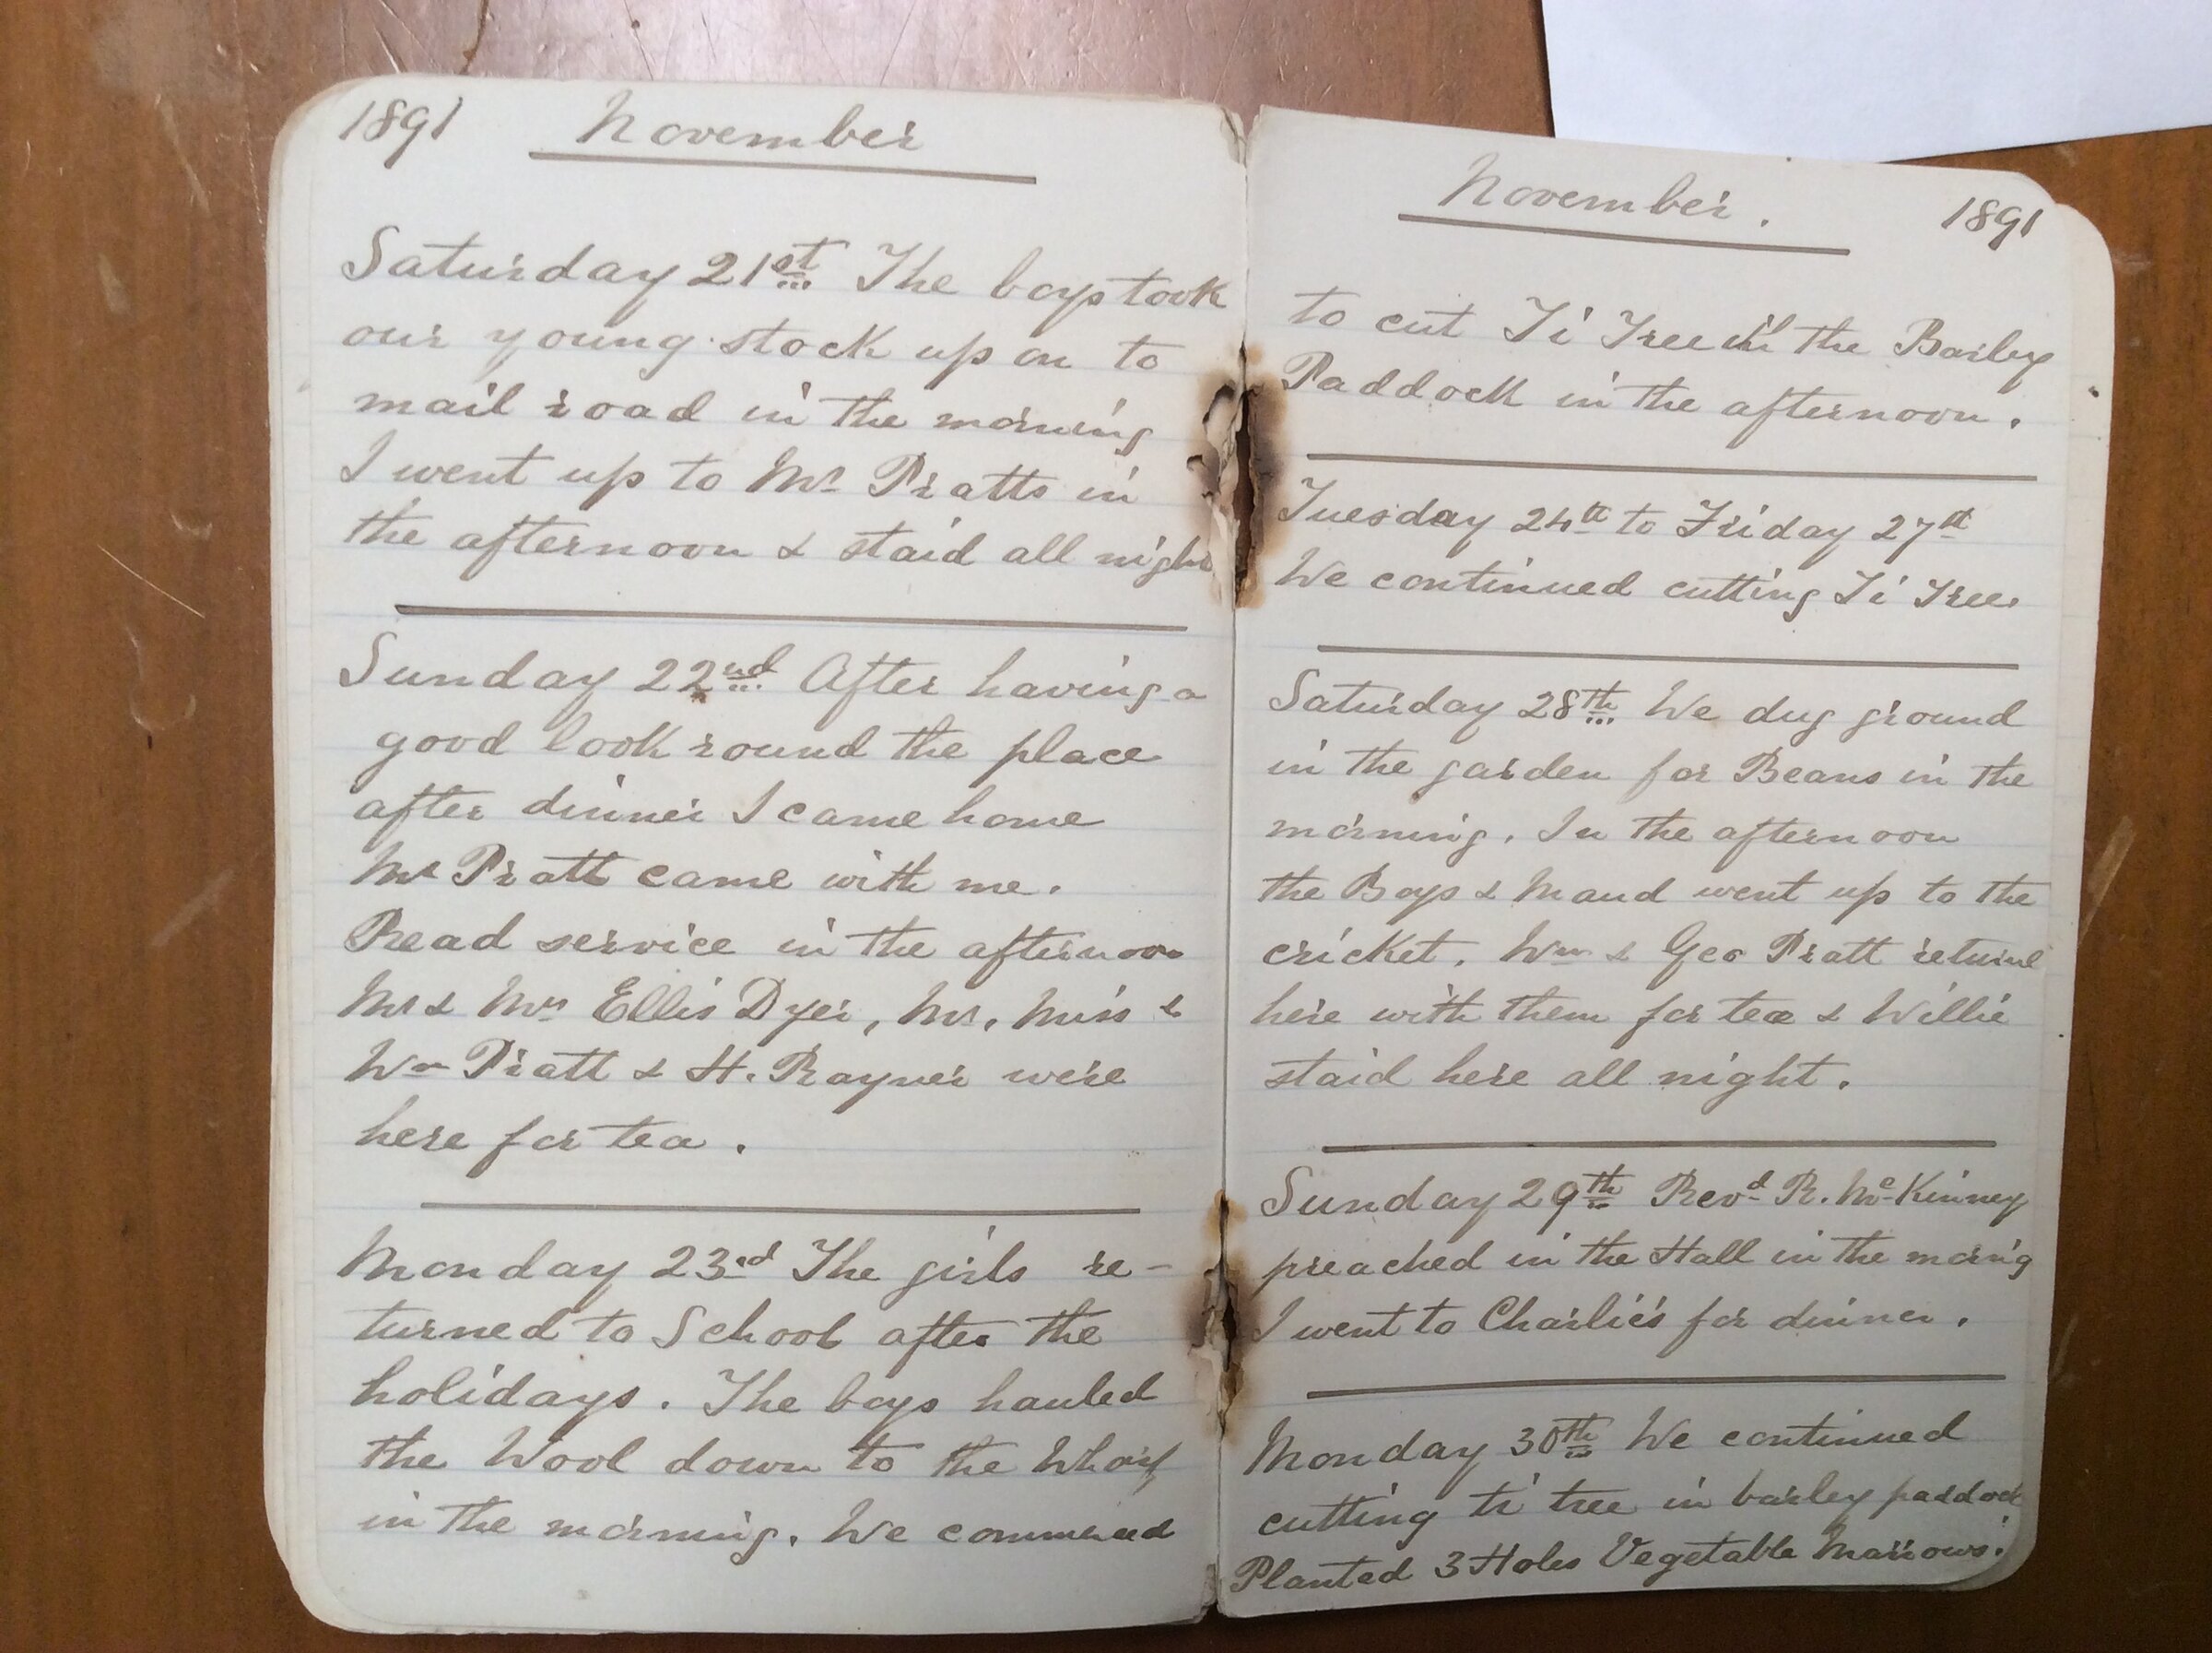 1891 November
Saturday 21st The boys took
our young stock up on to
mail road in the morning
I went up to Mr Pratts in
the afternoon & staid all night
Sunday 22nd After having a
good look round the place
after dinner I came home
Mr Pratt came with me.
Read service in the afternoon
Mr & Mrs Ellis Dyer, Mr, Miss &
Wm Pratt & H. Rayner were
here for tea.
Monday 23rd The girls re-
turned to School after the
holidays. The boys hauled
the Wool down to the Wharf,
in the morning. We commenced
November. 1891
to cut Ti Tree in the Barley
Paddock in the afternoon.
Tuesday 24th to Friday 27th
We continued cutting Ti Tree
Saturday 28th We dug ground
in the garden for Beans in the
morning. In the afternoon
the Boys & Maud went up to the
cricket. Wm & Geo Pratt returned
here with them for tea & Willie
staid here all night.
Sunday 29th Revd R. McKinney
preached in the Hall in the morng
I went to Charlie's for dinner.
Monday 30th We continued
cutting ti tree in barley paddock
Planted 3 Holes Vegetable Marrows.